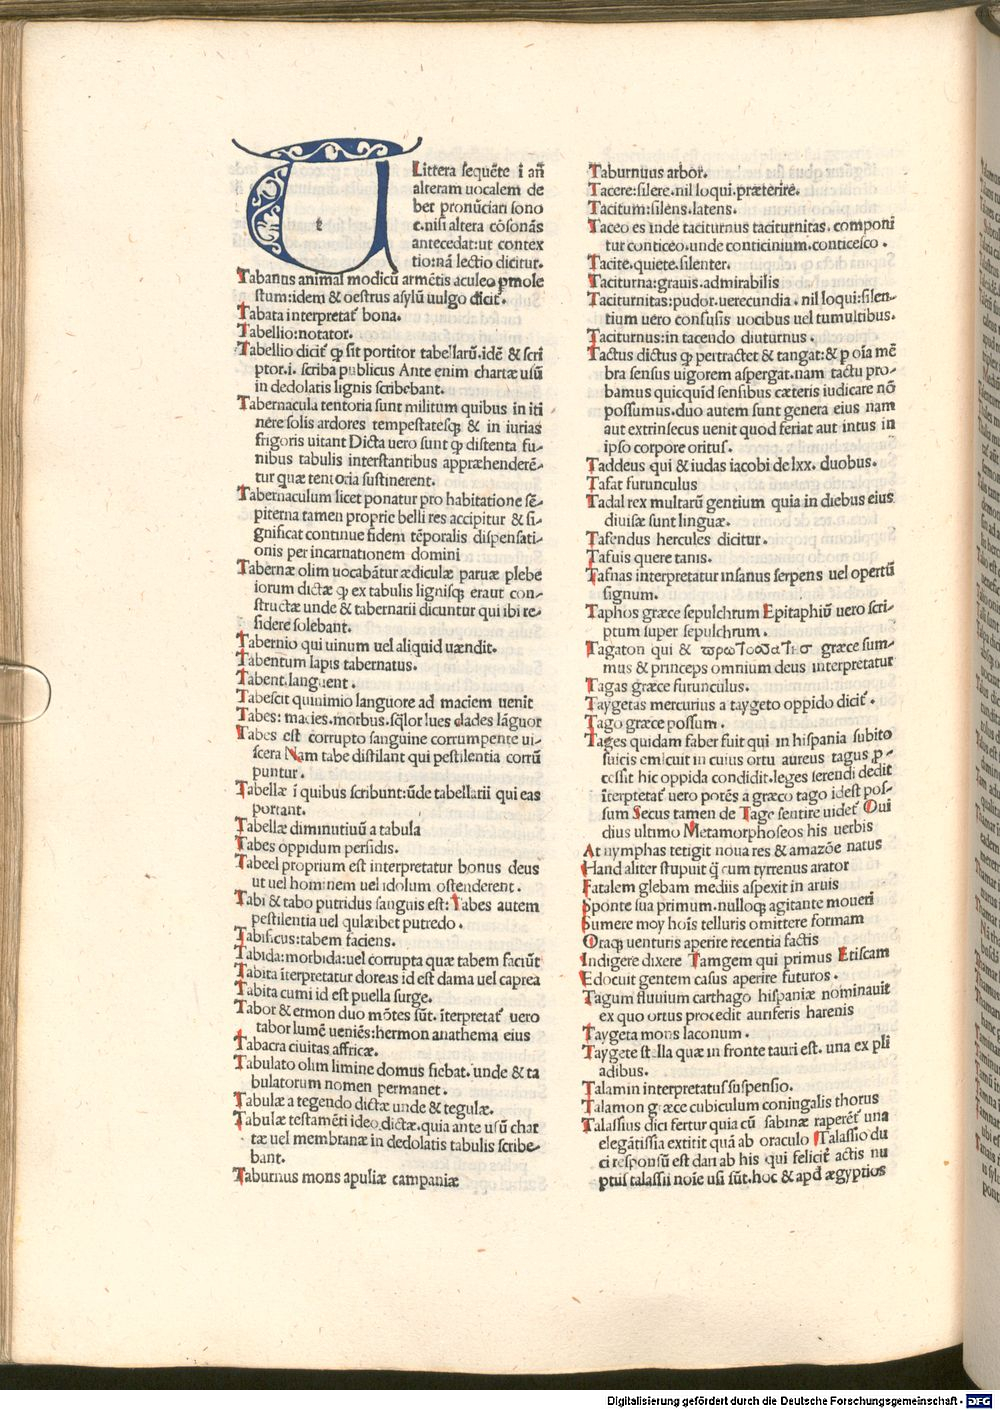 t
Littera sequēte i añ
alteram uocalem de
bet pronūciari sono
c.nisi altera cōsonās
antecedat:ut contex
tio:nā lectio dicitur.
Tabanus animal modicū armētis aculeo ꝓmole
stum:idem & oestrus asylū uulgo dicit᷑.
Tabata interpretat᷑ bona.
Tabellio:notator.
Tabellio dicit᷑ ꝙ sit portitor tabellarū.idē & scri
ptor.i. scriba publicus Ante enim chartæ usū
in dedolatis lignis scribebant.
Tabernacula tentoria sunt militum quibus in iti
nere solis ardores tempestatesqꝫ & in iurias
frigoris uitant Dicta uero sunt ꝙ distenta fu-
nibus tabulis interstantibus appræhenderē-
tur quæ tentoria sustinerent.
Tabernaculum licet ponatur pro habitatione sē-
piterna tamen proprie belli res accipitur & si-
gnificat continue fidem tēporalis dispensati-
onis per incarnationem domini
Tabernæ olim uocabātur ædiculæ paruæ plebe
iorum dictæ ꝙ ex tabulis lignisqꝫ eraut con-
structæ unde & tabernarii dicuntur qui ibi re-
sidere solebant.
Tabernio qui uinum uel aliquid uændit.
Tabentum lapis tabernatus.
Tabent.languent.
Tabescit quinimio languore ad maciem uenit
Tabes: macies.morbus.sq̄lor lues clades lāguor
Tabes est corrupto sanguine corrumpente ui-
scera Nam tabe distilant qui pestilentia corrū
puntur.
Tabellæ ī quibus scribunt:ūde tabellarii qui eas
portant.
Tabellæ diminutiuū a tabula
Tabes oppidum persidis.
Tabeel proprium est interpretatur bonus deus
ut uel hominem uel idolum ostenderent.
Tabi & tabo putridus sanguis est:Tabes autem
pestilentia uel qulæibet putredo.
Tabificus:tabem faciens.
Tabida:morbida:uel corrupta quæ tabem faciūt
Tabita īterpretatur doreas id est dama uel caprea
Tabita cumi id est puella surge.
Tabor & ermon duo mōtes sūt. īterpretat᷑ uero
tabor lumē ueniēs:hermon anathema eius
Tabacra ciuitas affricæ.
Tabulato olim limine domus fiebat.unde & ta
bulatorum nomen permanet.
Tabulæ a tegendo dictæ unde & tegulæ.
Tabulæ testamēti ideo dictæ.quia ante usū char
tæ uel membranæ in dedolatis tabulis scribe-
bant.
Taburnus mons apuliæ campaniæ
Taburnuus arbor.
Tacere:silere.nil loqui.præterire.
Tacitum:silens.latens.
Taceo es inde taciturnus taciturnitas. componī
tur conticeo.unde conticinium.conticesco.
Tacite.quiete.silenter.
Taciturna:grauis.admirabilis
Taciturnitas:pudor.uerecundia. nil loqui:silen-
tium uero confusis uocibus uel tumultibus.
Taciturnus:in tacendo diuturnus.
Tactus dictus ꝙ pertractet & tangat:& p oīa mē
bra sensus uigorem aspergat.nam tactu pro-
bamus quicquid sensibus cæteris iudicare nō
possumus.duo autem sunt genera eius nam
aut extrinsecus uenit quod feriat aut intus in
ipso corpore oritur.
Taddeus qui & iudas iacobi de lxx. duobus.
Tafat furunculus
Tadal rex multarū gentium quia in diebus eius
diuisæ sunt linguæ.
Tafendus hercules dicitur.
Tafuis quere tanis.
Tafnas interpretatur insanus serpens uel opertū
signum.
Taphos græce sepulchrum Epitaphiū uero scri-
ptum super sepulchrum.
Tagaton qui & græce sum-
mus & princeps omnium deus interpretatur
Tagas græce furunculus.
Taygetas mercurius a taygeto oppido dicit᷑.
Tago græce possum.
Tages quidam faber fuit qui in hispania subito
suicis emicuit in cuius ortu aureus tagus ꝓ-
cessit hic oppida condidit.leges serendi dedit
īterpretat᷑ uero potēs a græco tago idest pos-
sum Secus tamen de Tage sentire uidet᷑ Oui
dius ultimo Metamorphoseos his uerbis
At nymphas tetigit noua res & amazōe natus
Hand aliter stupuit q̄ cum tyrrenus arator
Fatalem glebam mediis aspexit in aruis
Sponte sua primum.nulloqꝫ agitante moueri
Sumere moy hoīs telluris omittere formam
Oraqꝫ uenturis aperire recentia factis
Indigere dixere Tamgem qui primus Etiscam
Edocuit gentem casus aperire futuros.
Tagum fluuium carthago hispaniæ nominauit
ex quo ortus procedit auriferis harenis
Taygeta mons laconum.
Taygete stella quæ in fronte tauri est. una ex pli
adibus.
Talamin interpretatur suspensio.
Talamon græce cubiculum coningalis thorus
Talassius dici fertur quia cū sabinæ raperēt᷑ una
elegātissia extitit quā ab oraculo Talassio du
ci responsū est dari ab his qui felicit᷑ actis nu
ptiis talassii noie usi sūt.hoc & apd ægyptios
Digitalisierung gefördert durch die Deutsche Forschungsgemeinschaft - DFG